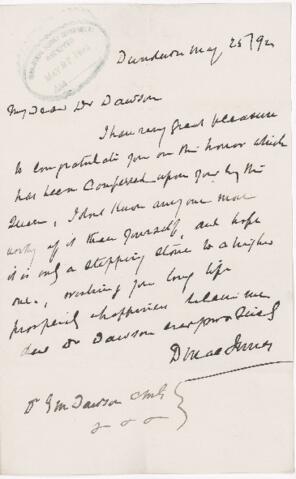 Dundurn May 25/92
My Dear Dr Dawson
I have very great pleasure
to congratulate you on the honor which
has been Conferred upon you by the
Queen, I dont know any one more
worthy of it than yourself, and hope
it is only a stepping stone to a higher
one, wishing you long life
prosperity & happiness believe me
dear Dr Dawson
D MacInnes
Dr G M Dawson CMG